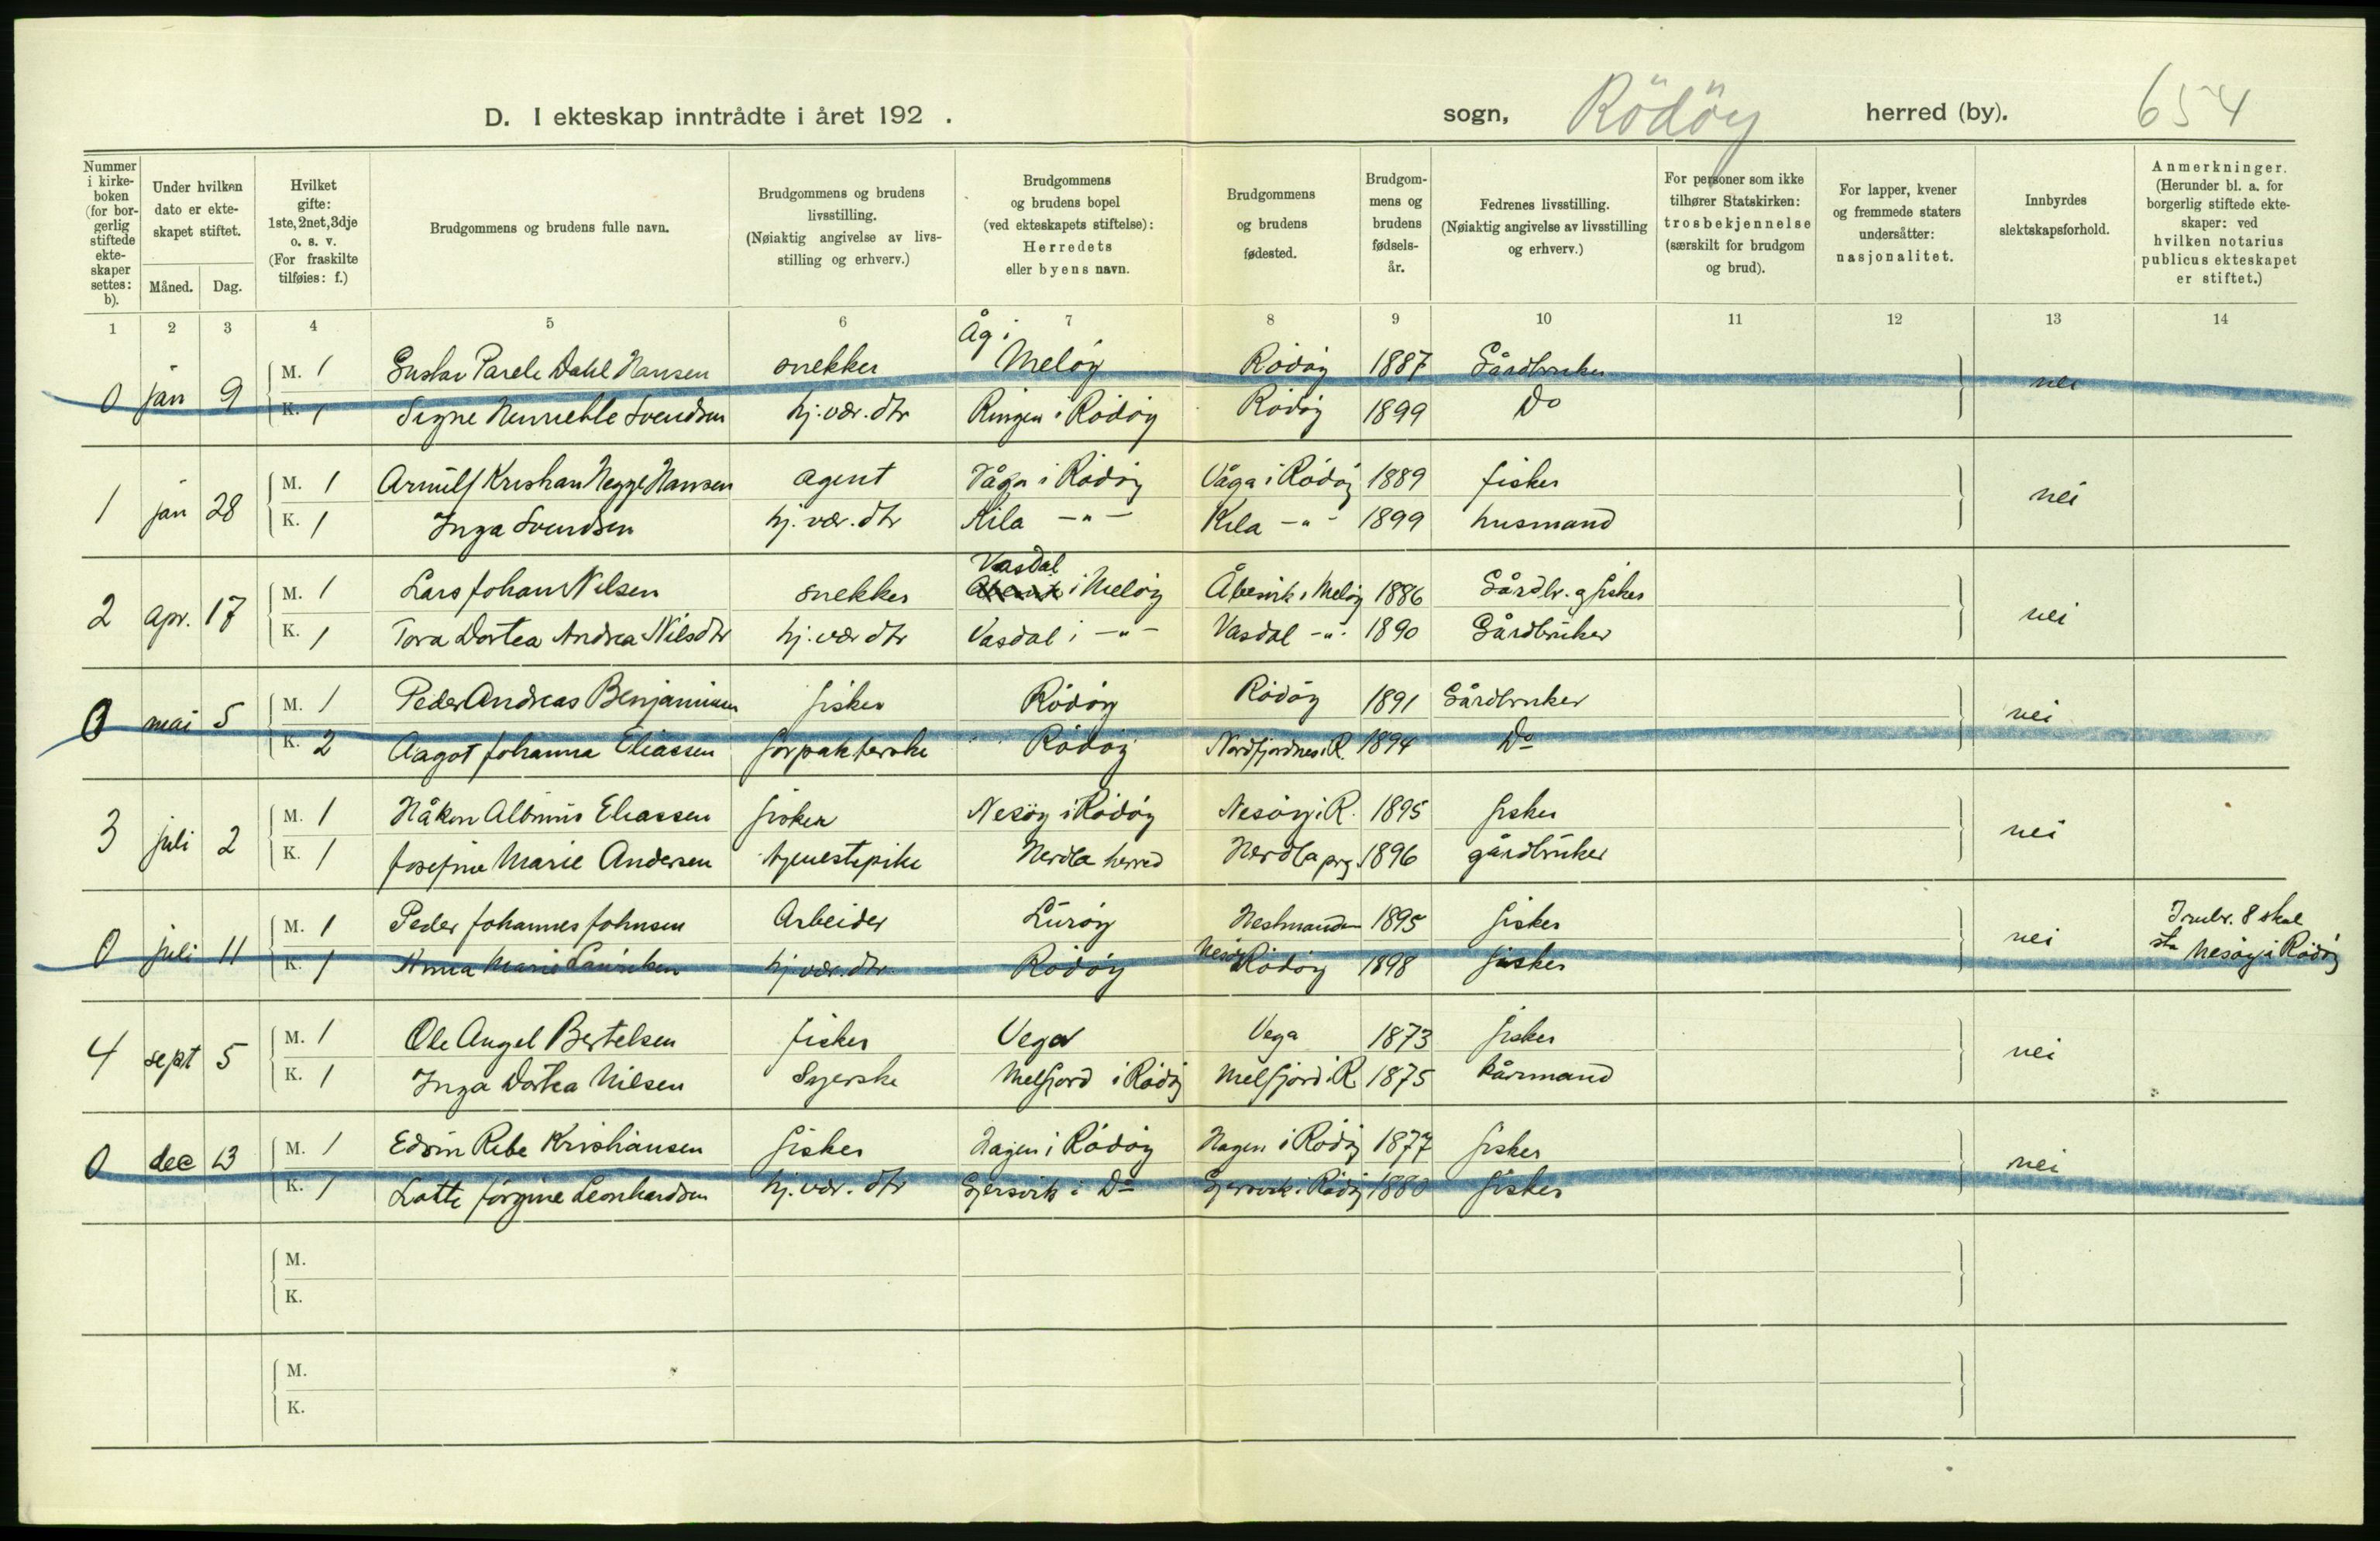 D. I ekteskap inntrådte i året 192 . sogn, Rödöy herred (by). 654
Nummer i kirke- boken (for bor- gerlig stiftede ekte- skaper settes: b).
Under hvilken dato er ekte- skapet stiftet.
Måned. Dag.
Hvilket gifte: 1ste, 2net, 3dje o. s. v. (For fraskilte tilføies: f.)
Brudgommens og brudens fulle navn.
Brudgommens og brudens livsstilling. (Nøiaktig angivelse av livs- stilling og erhverv.)
Brudgommens og brudens bopel (ved ekteskapets stiftelse): Herredets eller byens navn.
Brudgommens og brudens fødested.
Brudgom- mens og brudens fødsels- år.
Fedrenes livsstilling. (Nøiaktig angivelse av livsstilling og erhverv.)
For personer som ikke tilhører Statskirken: trosbekjennelse (særskilt for brudgom og brud).
For lapper, kvener og fremmede staters undersåtter: nasjonalitet.
Innbyrdes slektskapsforhold.
Anmerkninger. (Herunder bl. a. for borgerlig stiftede ekte- skaper: ved hvilken notarius publicus ekteskapet er stiftet.)
1 2 3 4 5 6 7 8 9 10 11 12 13 14
Åg i
0 jan 9 M. 1 Gustav Parele Dahl Hansen snekker Meløy Rödöy 1887 Gårdbruker nei
K. 1 Signe Svendsen hj.vær.dtr Ringen i Rödöy Rödöy 1899 Do
1 jan 28 M. 1 Arnulf Kristian Hegge Hansen agent Våga i Rödöy Våga i Rödöy 1889 fisker nei
K. 1 Inga Svendsen hj.vær.dtr Kila -"- Kila -"- 1899 husmand
Vasdal
2 apr. 17 M. 1 Lars Johan Nilsen snekker i Meløy Åbenvik i Meløy 1886 Gårdbr. og fisker nei
K. 1 Tora Dortea Andrea Nilsdtr hj.vær dtr Vasdal i -"- Vasdal -"- 1890 Gårdbruker
0 mai 5 M. 1 Peder Andreas Benjaminsen fisker Rödöy Rödöy 1891 Gårdbruker nei
K. 2 Aagot Johanna Eliassen forpakterske Rödöy Nordfjordnes i R. 1894 Do
3 juli 2 M. 1 Håkon Albinus Eliassen fisker Nesöy i Rödöy Nesöy i R. 1895 fisker nei
K. 1 Josefine Marie Andersen tjenestepike Herdla herred Herdla prg. 1896 gårdbruker
0 juli 11 M. 1 Peder Johannes Johnsen Arbeider Luröy Hestmanden 1895 fisker nei Innbr. 8 skal
K. 1 Anna Marie Lauritsen hj.vær.dtr. Rödöy Nesöy Rödöy 1898 fisker sta Nesöy i Rödöy
4 sept 5 M. 1 Ole Angel Bertelsen fisker Vega Vega 1873 fisker nei
K. 1 Inga Dortea Nilsen Syerske Melfjord i Rödöy Melfjord i R. 1875 kårmand
0 dec 13 M. 1 Edvin Rebe Kristiansen fisker Hagen i Rödöy Hagen i Rödöy 1877 fisker nei
K. 1 Lotte Jörgine Leonhardsen hj.vær.dtr Gjersvik i Do Gjersvik i Rödöy 1880 fisker
M.
K.
M.
K.